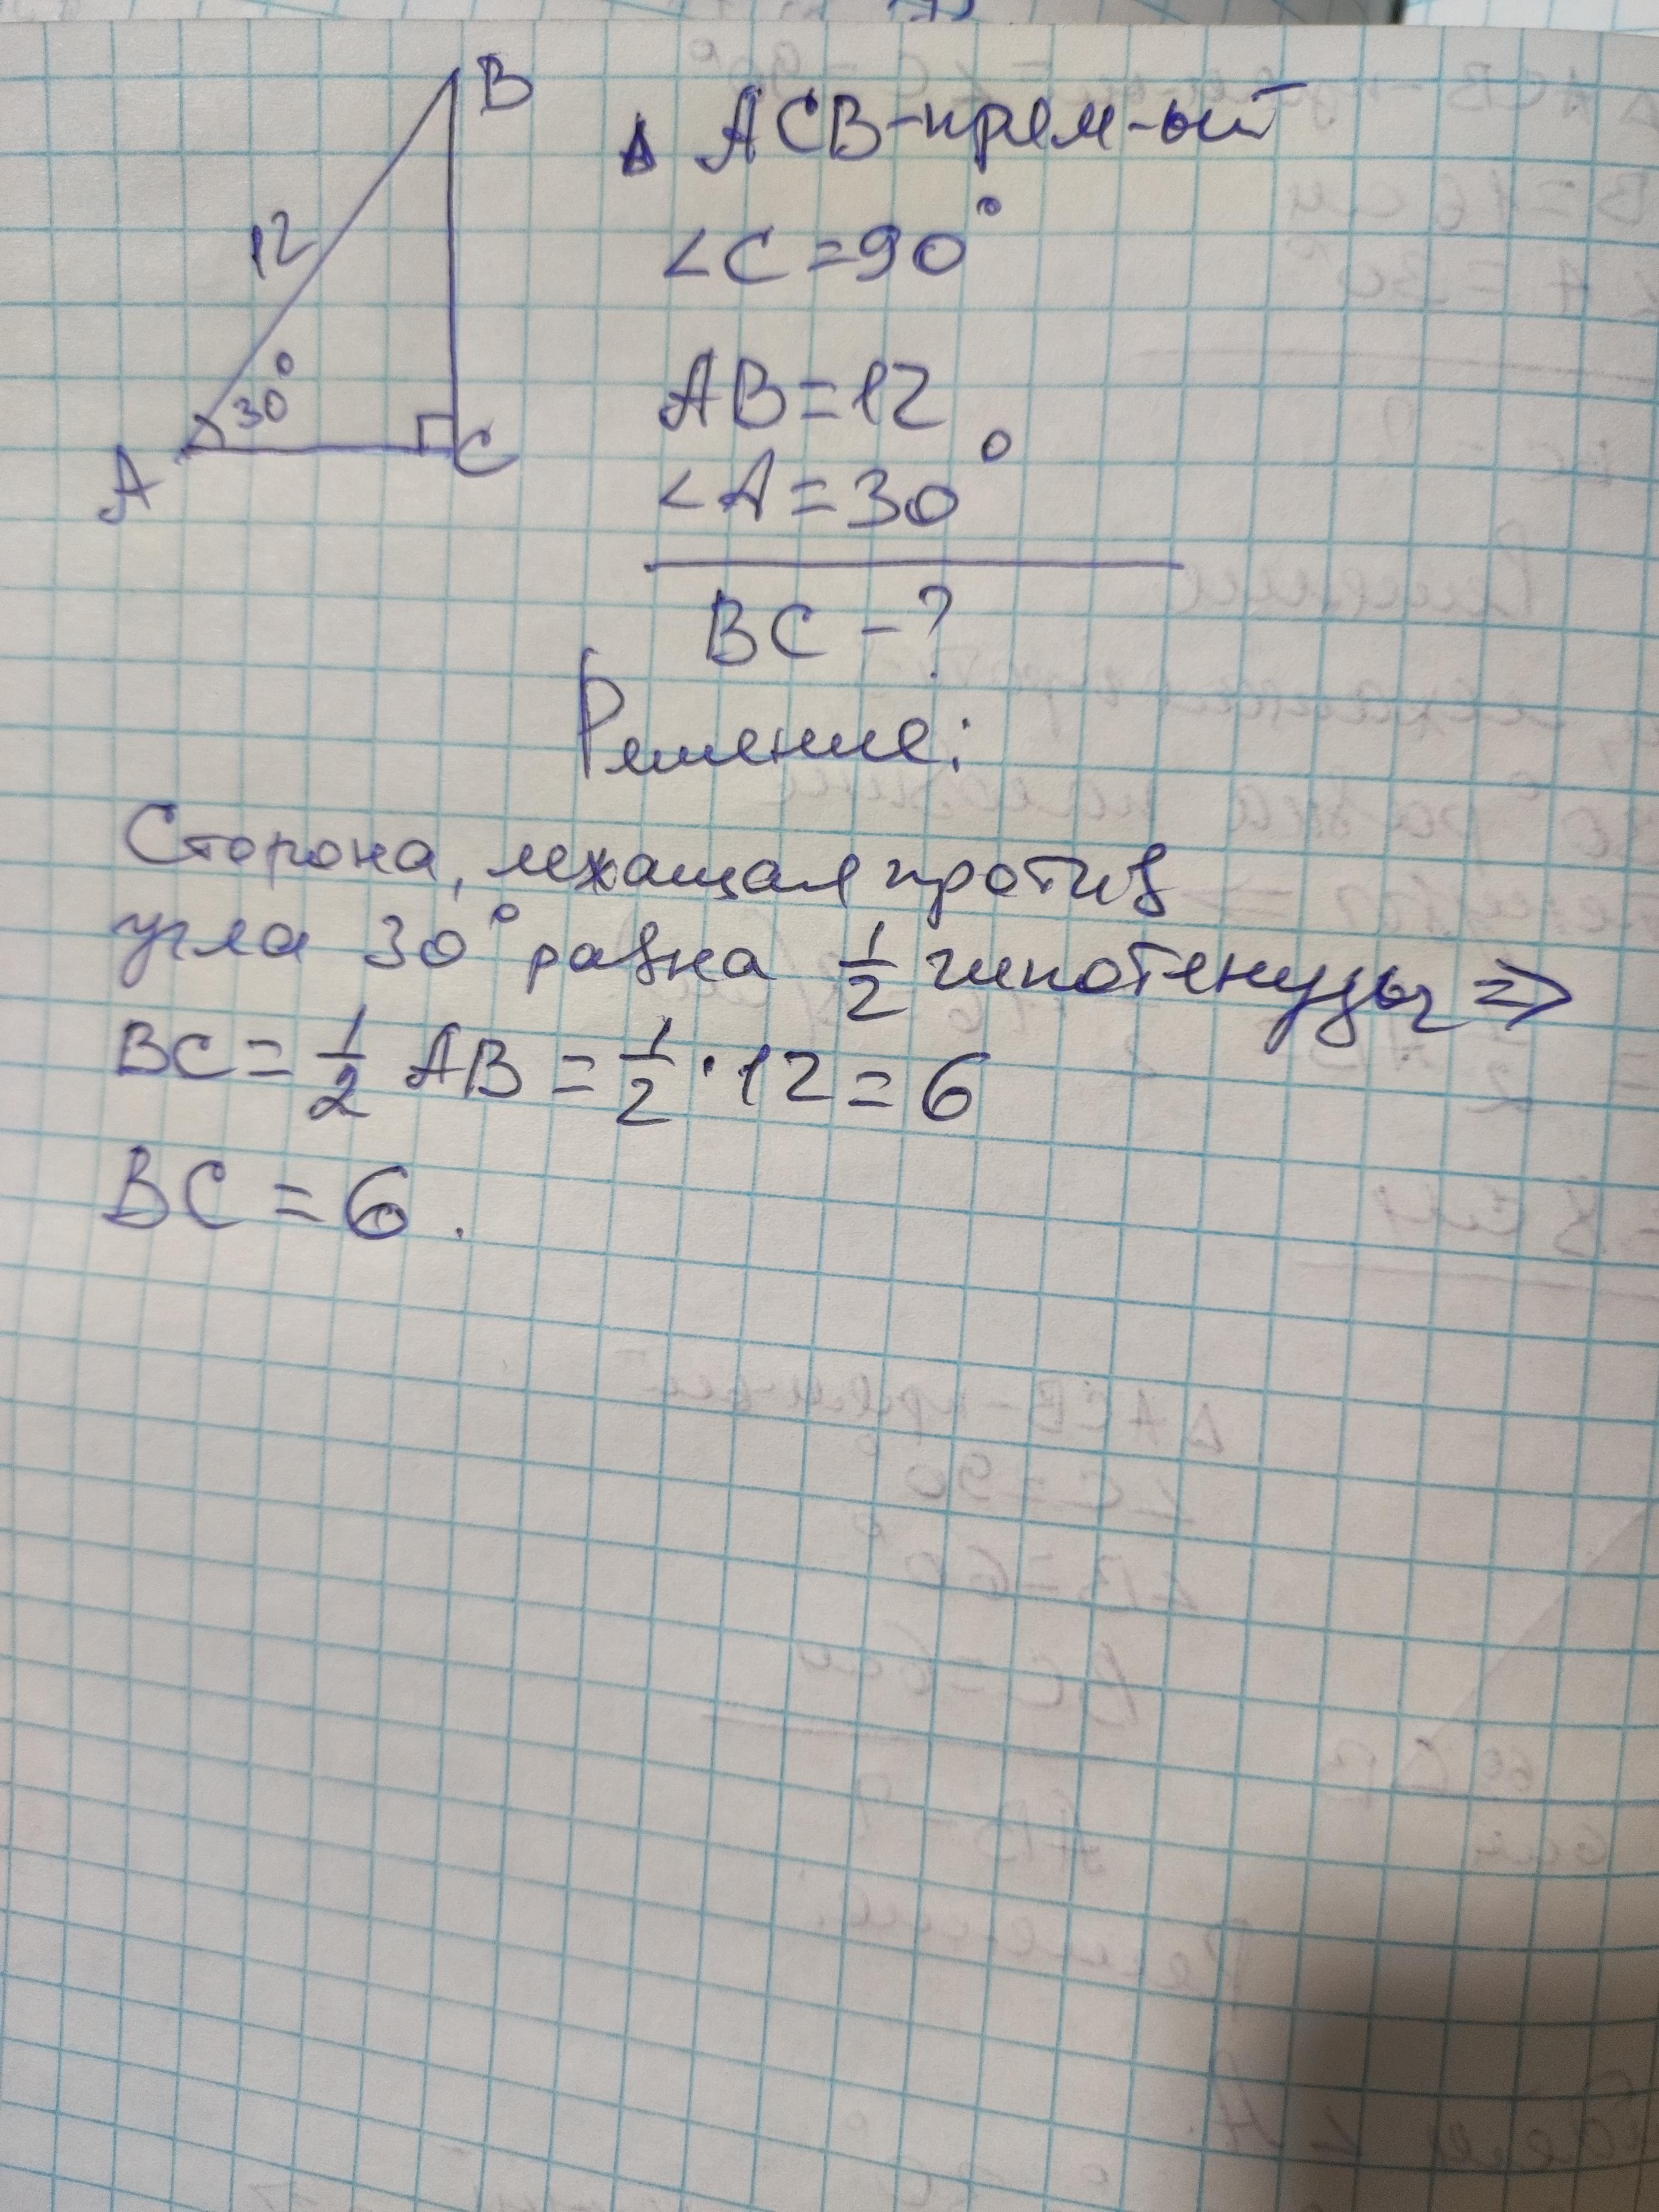 B
12
30°
A
C
Δ ACB-прям-ый
<C=90°
AB=12
<A=30°
BC-?
Решение:
Сторона, лежащая против
угла 30° равна 1/2 гипотенузы =>
BC = 1/2 AB = 1/2 · 12 = 6
BC = 6.